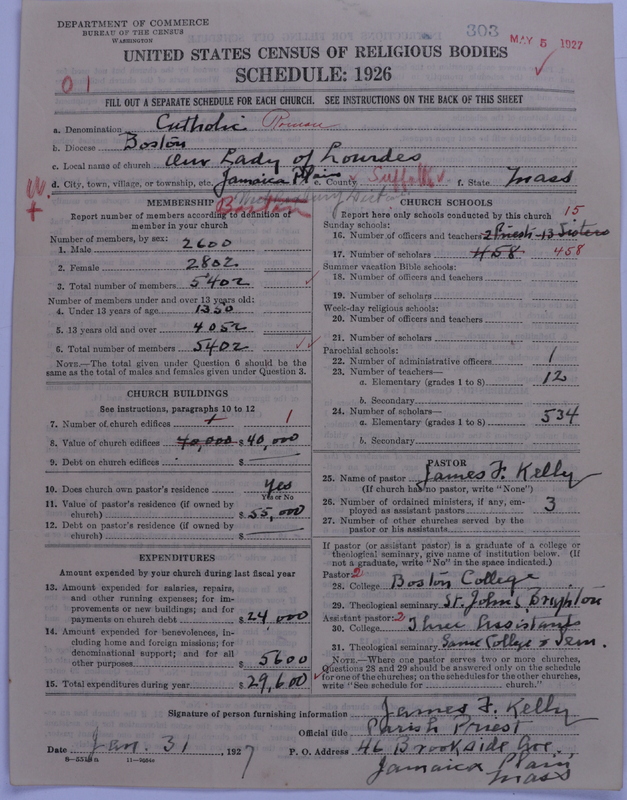 DEPARTMENT OF COMMERCE
BUREAU OF THE CENSUS
WASHINGTON
303
MAY 5 1927
UNITED STATES CENSUS OF RELIGIOUS BODIES
SCHEDULE: 1926
01
FILL OUT A SEPARATE SCHEDULE FOR EACH CHURCH. SEE INSTRUCTIONS ON THE BACK OF THIS SHEET
a. Denomination Catholic Roman
b. Diocese Boston
c. Local name of church Our Lady of Lourdes
d. City, town, village, or township, etc. Jamaica Plain e. County Suffolk f. State Mass
Boston
MEMBERSHIP
Report number of members according to definition of
member in your church
Number of members, by sex:
1. Male 2600
2. Female 2802
3. Total number of members 5402
Number of members under and over 13 years old:
4. Under 13 years of age 1350
5. 13 years old and over 4052
6. Total number of members 5402
NOTE.—The total given under Question 6 should be the
same as the total of males and females given under Question 3.
CHURCH BUILDINGS
See instructions, paragraphs 10 to 12
7. Number of church edifices 1
8. Value of church edifices 70,000 $ 40,000
9. Debt on church edifices $
10. Does church own pastor's residence Yes
Yes or No
11. Value of pastor's residence (if owned by
church) $ 55,000
12. Debt on pastor's residence (if owned by
church) $
EXPENDITURES
Amount expended by your church during last fiscal year
13. Amount expended for salaries, repairs,
and other running expenses; for im-
provements or new buildings; and for
payments on church debt $ 24,000
14. Amount expended for benevolences, in-
cluding home and foreign missions; for
denominational support; and for all
other purposes $ 5600
15. Total expenditures during year $ 29,600
CHURCH SCHOOLS
Report here only schools conducted by this church
15
Sunday schools:
16. Number of officers and teachers 2 Priests - 13 Sisters
17. Number of scholars 458 458
Summer vacation Bible schools:
18. Number of officers and teachers
19. Number of scholars
Week-day religious schools:
20. Number of officers and teachers
21. Number of scholars
Parochial schools:
22. Number of administrative officers 1
23. Number of teachers—
a. Elementary (grades 1 to 8) 12
b. Secondary
24. Number of scholars—
a. Elementary (grades 1 to 8) 534
b. Secondary
PASTOR
25. Name of pastor James F. Kelly
(If church has no pastor, write "None")
26. Number of ordained ministers, if any, em-
ployed as assistant pastors 3
27. Number of other churches served by the
pastor or his assistants
If pastor (or assistant pastor) is a graduate of a college or
theological seminary, give name of institution below. (If
not a graduate, write "No" in the space indicated.)
Pastor: 2
28. College Boston College
29. Theological seminary St. John's Brighton
Assistant pastor: 2
30. College Three Assistants
31. Theological seminary Same College & Sem.
NOTE.—Where one pastor serves two or more churches,
Questions 28 and 29 should be answered only on the schedule
for one of the churches; on the schedules for the other churches,
write "See schedule for church."
Signature of person furnishing information James F. Kelly
Official title Parish Priest
Date Jan. 31, 1927 P. O. Address 46 Brookside Ave.,
Jamaica Plain
Mass